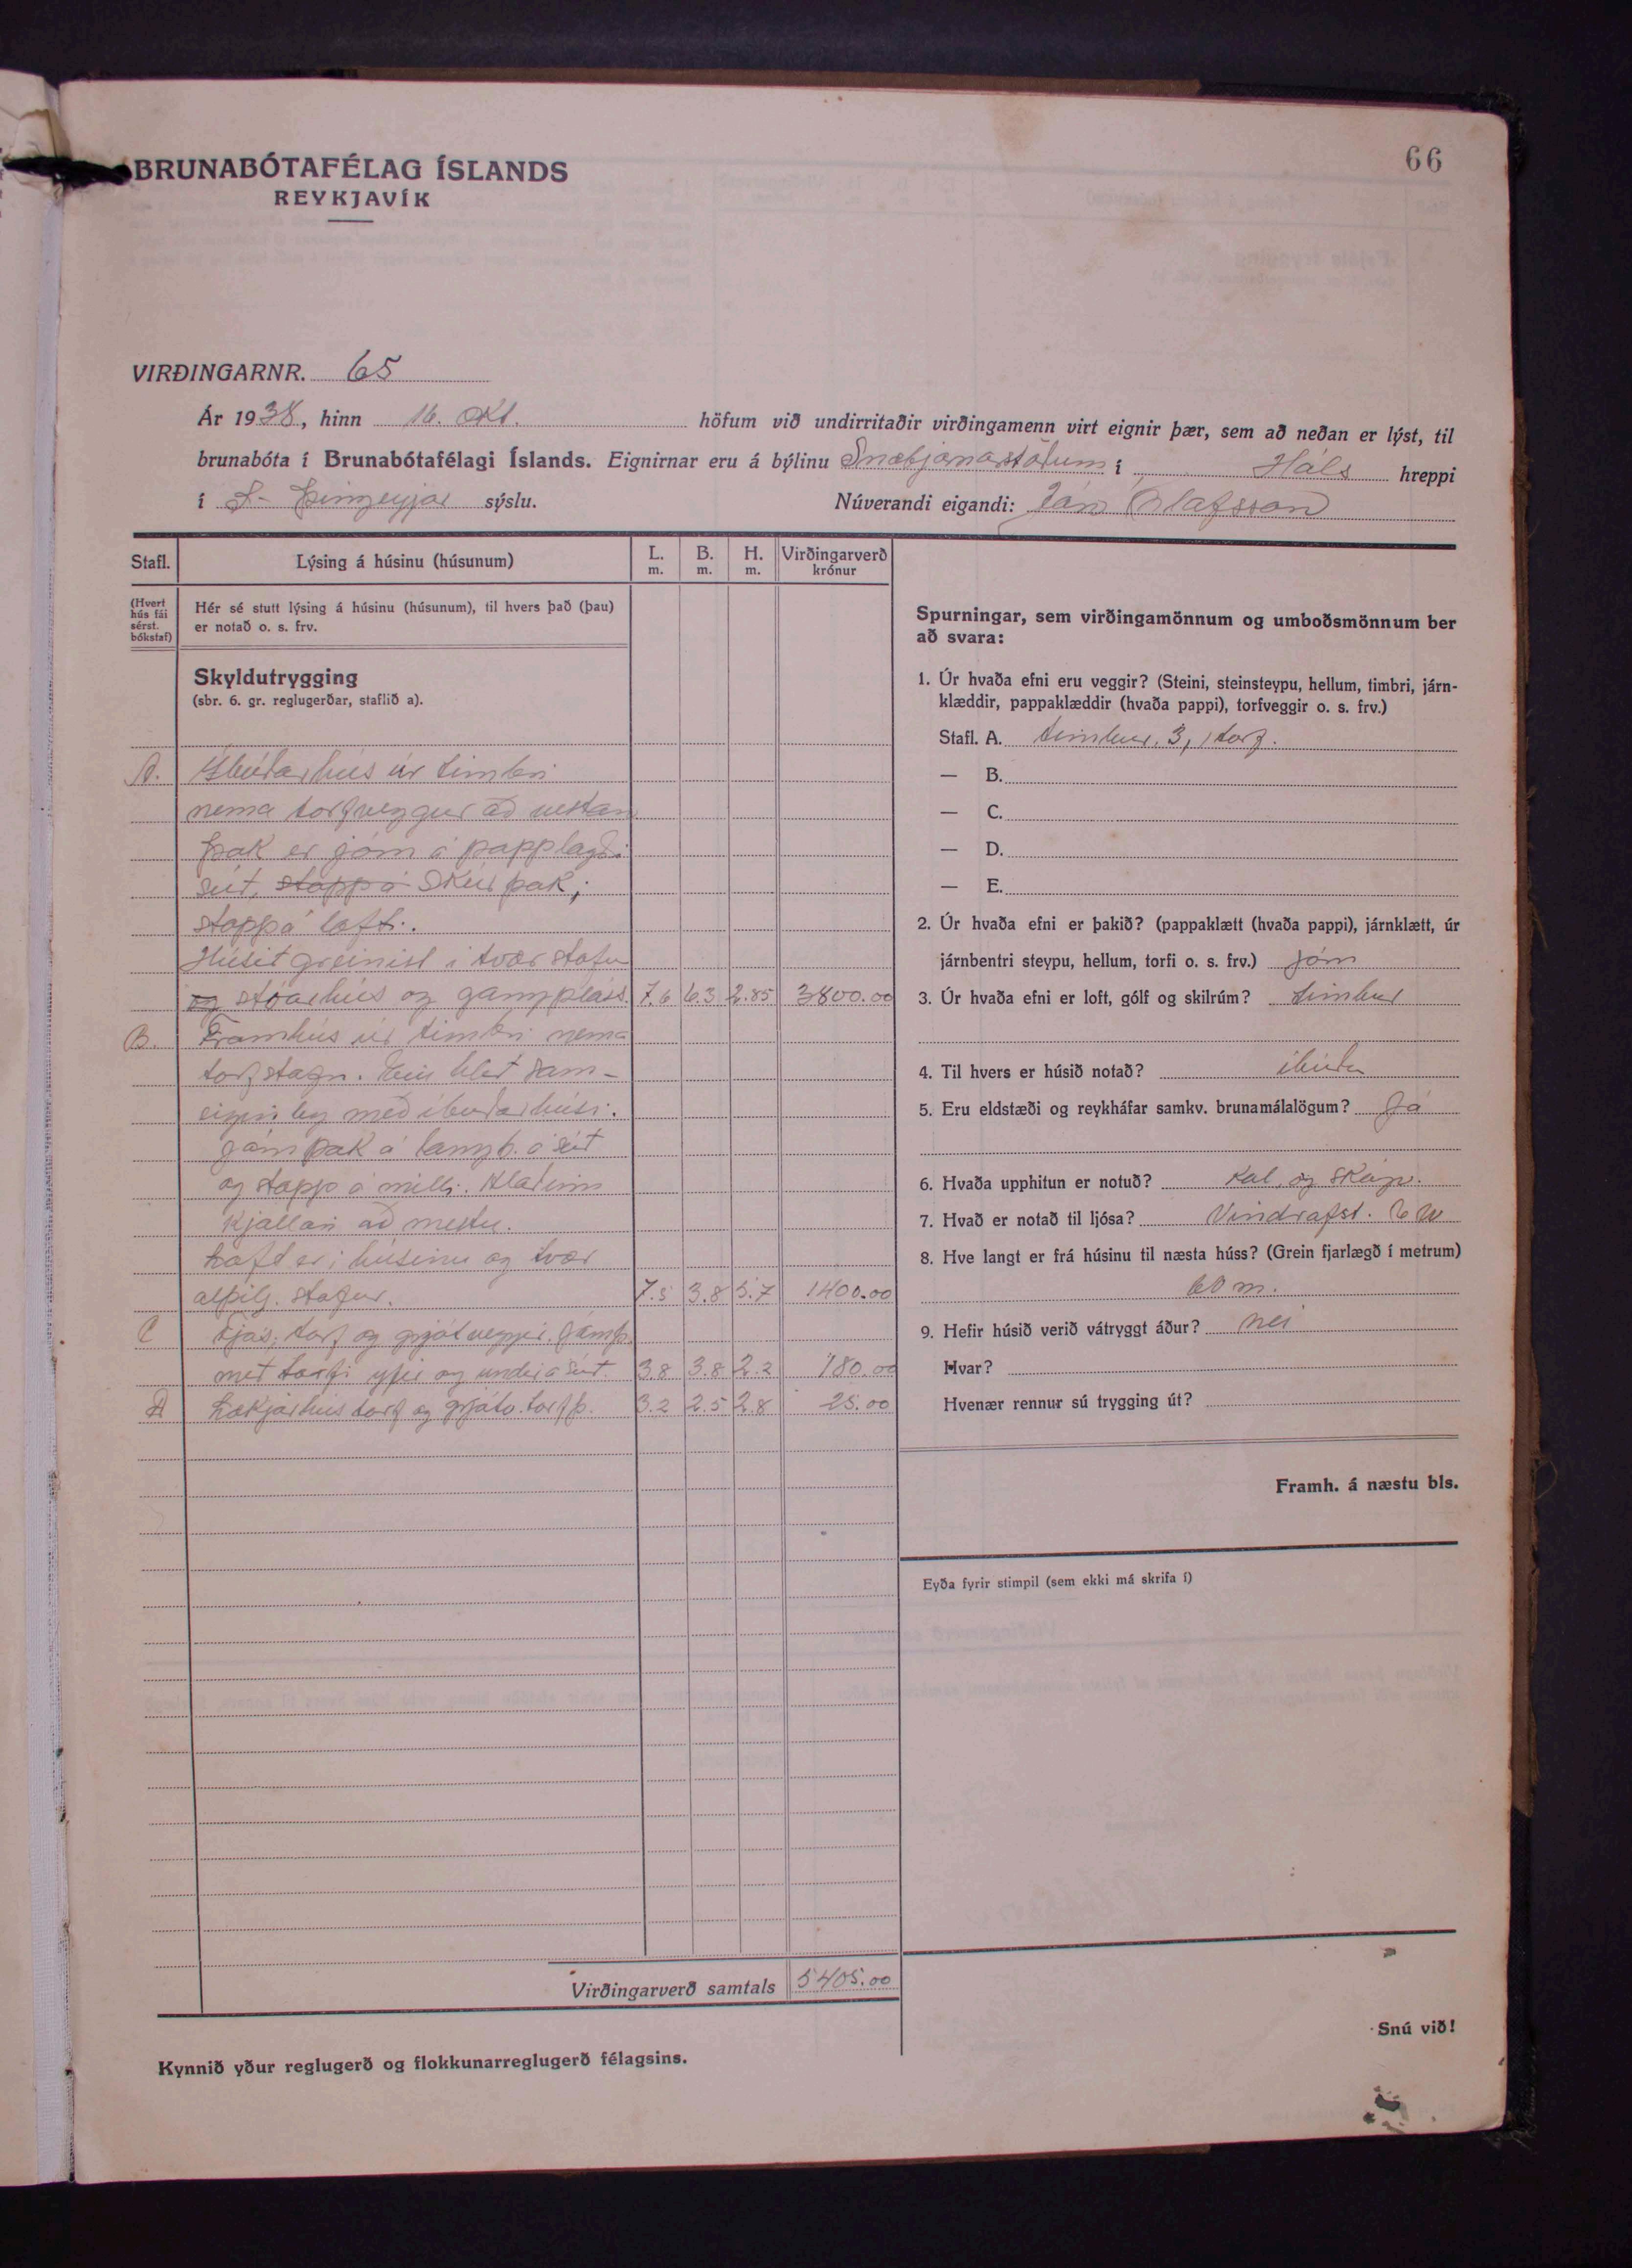 66
BRUNABÓTAFÉLAG ÍSLANDS
REYKJAVÍK
VIRÐINGARNR. 65
Ár 1938, hinn 16. okt. höfum við undirritaðir virðingamenn virt eignir þær, sem að neðan er lýst, til
brunabóta í Brunabótafélagi Íslands. Eignirnar eru á býlinu Snæbjarnarstöðum í Háls hreppi
í S- Þingeyjar sýslu. Núverandi eigandi: Jón Ólafsson
Stafl. Lýsing á húsinu (húsunum) L. m. B. m. H. m. Virðingarverð krónur
(Hvert hús fái sérst. bókstaf)
Hér sé stutt lýsing á húsinu (húsunum), til hvers það (þau)
er notað o. s. frv.
Skyldutrygging
(sbr. 6. gr. reglugerðar, staflið a).
A. Íbúðarhús úr timbri
nema torfveggur að vestan
Þak er járn á papplagði
súð, stopp á skúrþak,
stopp á lofti.
Húsið greinist í tvær stofur
og stóarhús og gangpláss. 7.6 6.3 2.85 3800.00
B. Framhús úr timbri nema
torfstagn. Ein hlið sam-
eiginleg með íbúðarhúsi.
járnþak á langb. á súð
og stopp á milli. Hlaðinn
kjallari að mestu.
Loft er í húsinu og tvær
alþilj. stofur. 7.5 3.8 5.7 1400.00
C Fjós, torf og grjótveggir. járnþ.
með torfi yfir og undir á súð. 3.8 3.8 2.2 180.00
D Lækjarhús torf og grjótv. torfþ. 3.2 2.5 2.8 25.00
Virðingarverð samtals 5405.00
Kynnið yður reglugerð og flokkunarreglugerð félagsins.
Spurningar, sem virðingamönnum og umboðsmönnum ber
að svara:
1. Úr hvaða efni eru veggir? (Steini, steinsteypu, hellum, timbri, járn-
klæddir, pappaklæddir (hvaða pappi), torfveggir o. s. frv.)
Stafl. A. timbur, 3, 1 torf.
— B.
— C.
— D.
— E.
2. Úr hvaða efni er þakið? (pappaklætt (hvaða pappi), járnklætt, úr
járnbentri steypu, hellum, torfi o. s. frv.) járn
3. Úr hvaða efni er loft, gólf og skilrúm? timbur
4. Til hvers er húsið notað? íbúðar
5. Eru eldstæði og reykháfar samkv. brunamálalögum? Já
6. Hvaða upphitun er notuð? kol, og skógv.
7. Hvað er notað til ljósa? Vindrafst. 6 W
8. Hve langt er frá húsinu til næsta húss? (Grein fjarlægð í metrum)
60 m.
9. Hefir húsið verið vátryggt áður? nei
Hvar?
Hvenær rennur sú trygging út?
Framh. á næstu bls.
Eyða fyrir stimpil (sem ekki má skrifa í)
Snú við!